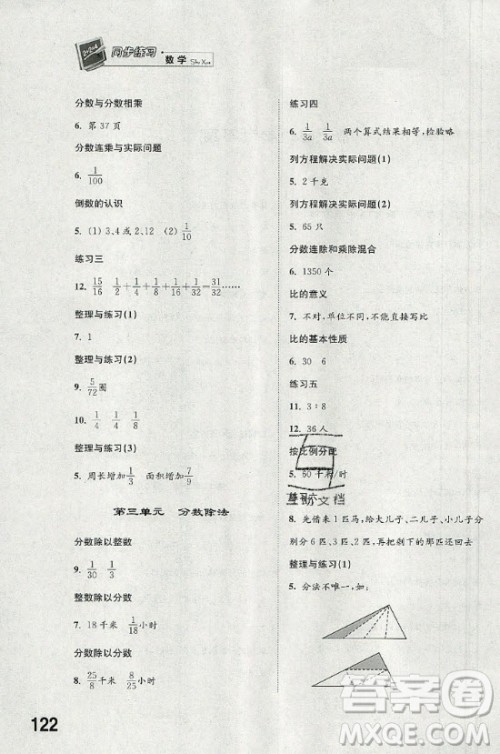 同步练习·
数学
Shu Xue
分数与分数相乘
6. 第37页
分数连乘与实际问题
6. 1/100
倒数的认识
5. (1) 3,4或2,12 (2) 1/10
练习三
12. 15/16 1/2+1/4+1/8+1/16+1/32=31/32……
整理与练习(1)
7. 1
整理与练习(2)
9. 5/72圈
10. 1/4 1/4
整理与练习(3)
5. 周长增加1/3 面积增加7/9
第三单元 分数除法
分数除以整数
9. 1/30 1/3
整数除以分数
7. 18千米 1/18小时
分数除以分数
8. 25/8千米 8/25小时
122
练习四
6. 1/3a 1/3a 两个算式结果相等,检验略
列方程解决实际问题(1)
5. 2千克
列方程解决实际问题(2)
5. 65只
分数连除和乘除混合
6. 1350个
比的意义
7. 不对,单位不同,不能比。
比的基本性质
6. 30 6
练习五
11. 3∶8
12. 36人
按比例分配
5. 60千米/时
练习六
互助文档
8. 先借来1匹马,给大儿子、二儿子、小儿子分
别分6匹、3匹、2匹,再把剩下的1匹还回去
整理与练习(1)
5. 分法不唯一,如
答案圈
MXQE.COM